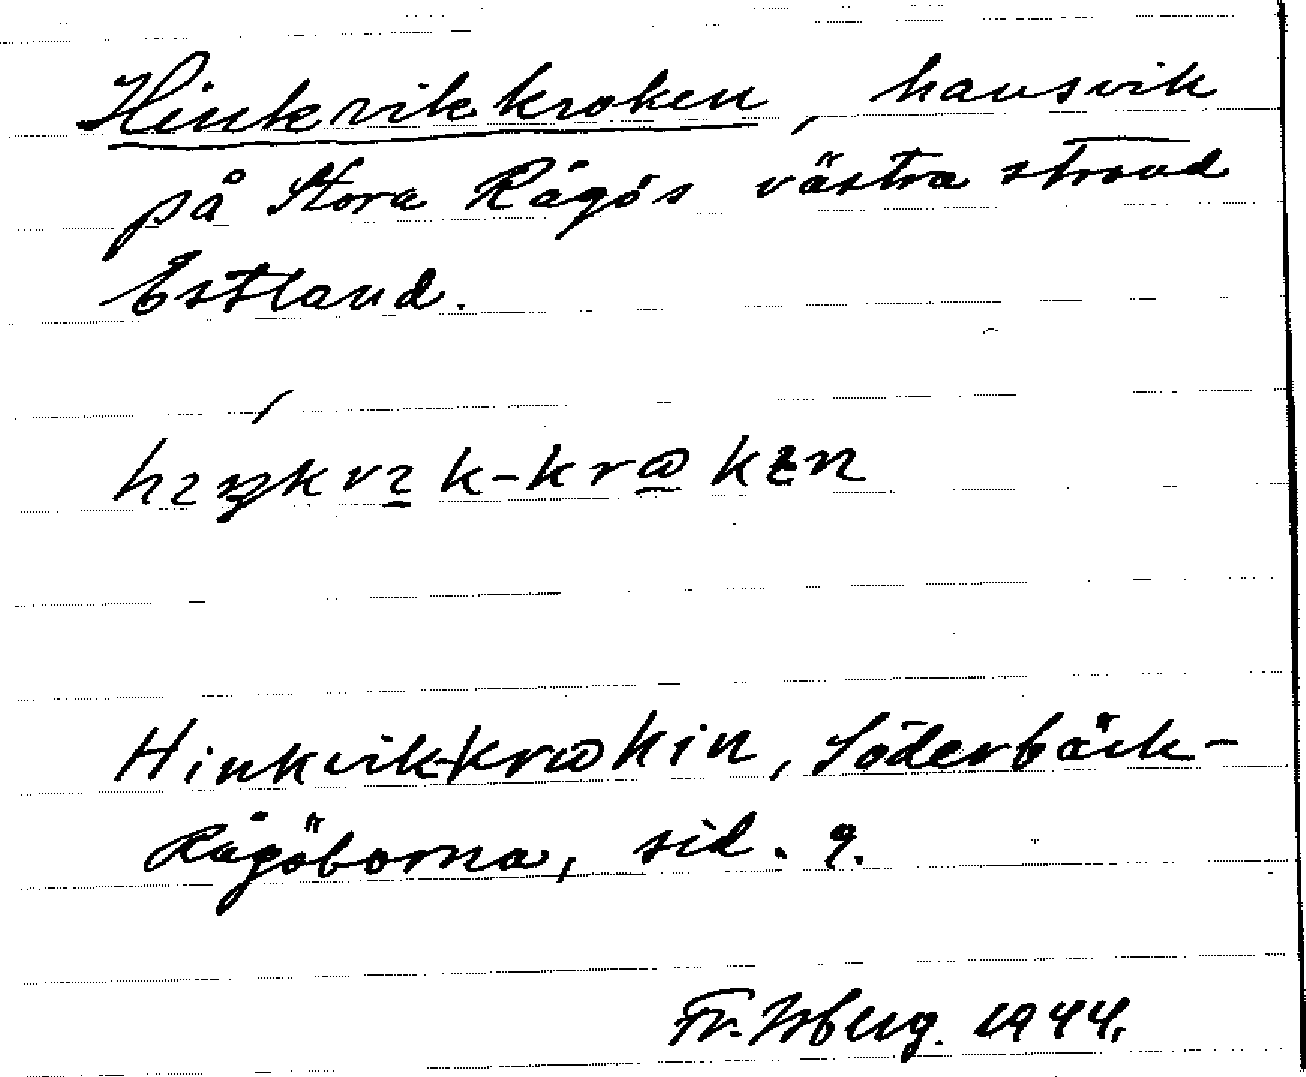 Hinkvikkroken, havsvik
på Stora Rågös västra strand
Estland.
hıŋkvı̲k-krω̲kεn
Hinkvik-krωkin, Söderbäck-
Rågöborna, sid. 9.
Fr. Isberg. 1944.